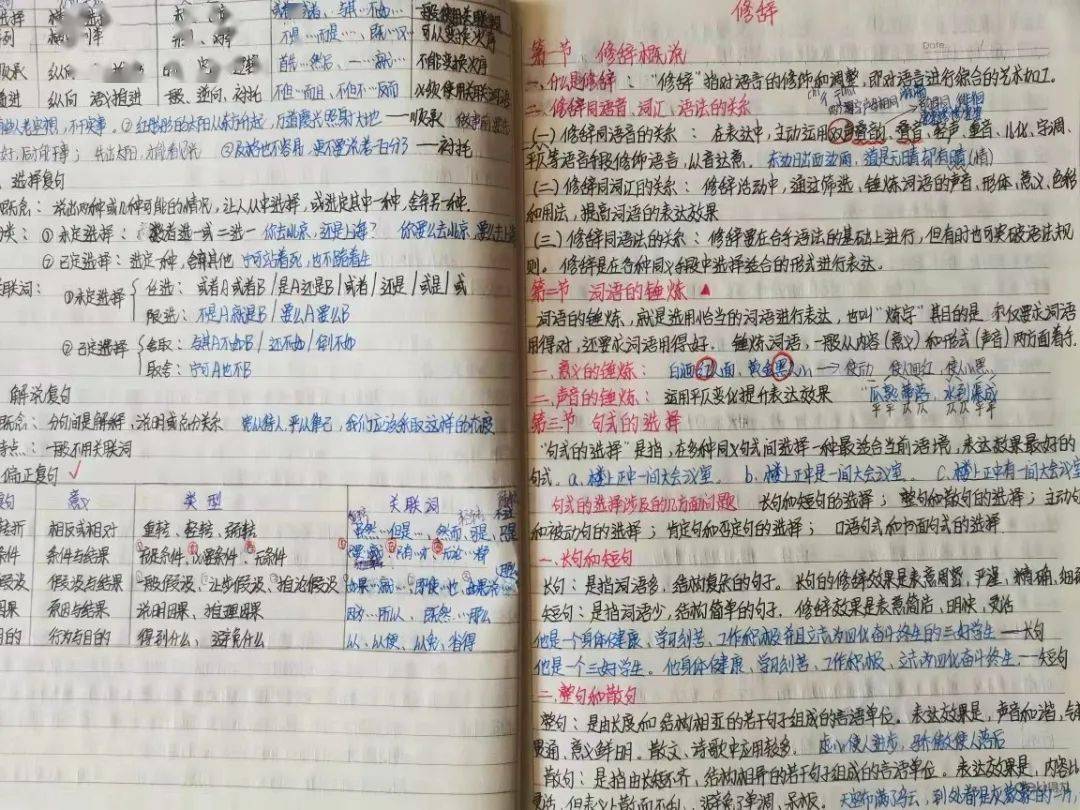 选择
并列
不是…而是…、既…又…
可以变换次序
顺承 纵向
首先…然后、一…就…
不能变换次序
递进 纵向 语义推进
一般、逆向、衬托
不但…而且、不但不…反而
必须使用关联词语
选择复句
概念：说出两种或几种可能的情况，让人从中选择，或选定其中一种，舍弃另一种。
分类：①未定选择：数者选一或二选一 你去北京，还是上海？ 你要么去北京，要么去上海
②已定选择：选定一种，舍弃其他 宁可站着死，也不跪着生
关联词：①未定选择
任选：或者A或者B/是A还是B/或者/还是/或是/或
限选：不是A就是B/要么A要么B
②已定选择
舍取：与其A不如B/还不如/倒不如
取舍：宁可A也不B
解说复句
概念：分句间是解释、说明或总分关系 宽以待人，严以律己，我们应该采取这样的态度
特点：一般不用关联词
偏正复句 ✓
意义 类型 关联词
转折 相反或相对 重转、轻转、弱转 虽然…但是…、然而、可是、只是
条件 条件与结果 充足条件、必要条件、无条件 只要…就…、只有…才、无论…都
假设 假设与结果 一般假设、让步假设、推论假设 如果…就…、即使…也
因果 原因与结果 说明因果、推理因果 因为…所以、既然…那么
目的 行为与目的 得到什么、避免什么 以、以便、以免、省得
修辞
Date
第一节 修辞概说
一、什么是修辞：“修辞”指对语言的修饰和调整，即对语言进行综合的艺术加工。
二、修辞同语音、词汇、语法的关系
(一)修辞同语音的关系：在表达中，主动运用双声叠韵、叠音、拟声、重音、儿化、字调、
平仄等语音手段修饰语言，以音达意。 东边日出西边雨，道是无晴却有晴(情)
(二)修辞同词汇的关系：修辞活动中，通过筛选、锤炼词语的声音、形体、意义、色彩
和用法，提高词语的表达效果
(三)修辞同语法的关系：修辞要在合乎语法的基础上进行，但有时也可突破语法规
则。修辞是在各种同义手段中选择适合的形式进行表达。
第二节 词语的锤炼 ▲
词语的锤炼，就是选用恰当的词语进行表达，也叫“炼字”其目的是，不仅要求词语
用得对，还要求词语用得好。锤炼词语，一般从内容(意义)和形式(声音)两方面着手。
一、意义的锤炼：白酒红人面，黄金黑人心 → 使动 使人面红，使人心黑
二、声音的锤炼：运用平仄变化提升表达效果 “瓜熟蒂落，水到渠成
平平仄仄 仄仄平平
第三节 句式的选择
“句式的选择”是指，在多种同义句式间选择一种最适合当前语境，表达效果最好的
句式。a、楼上正中一间大会议室。 b、楼上正中是一间大会议室。 c、楼上正中有一间大会议室
句式的选择涉及的几方面问题 长句和短句的选择；整句和散句的选择；主动句
和被动句的选择；肯定句和否定句的选择；口语句式和书面句式的选择
一、长句和短句
长句：是指词语多，结构复杂的句子。长句的修辞效果是表意周密，严谨，精确，细致
短句：是指词语少，结构简单的句子。修辞效果是表意简洁、明快、灵活
他是一个身体健康、学习刻苦、工作积极并且立志为四化奋斗终生的三好学生——长句
他是一个三好学生。他身体健康、学习刻苦、工作积极、立志为四化奋斗终生。—短句
二、整句和散句
整句：是由长度和结构相近的若干句子组成的言语单位。表达效果是，声音和谐，气势
贯通，意义鲜明。散文、诗歌中应用较多。 虚心使人进步，骄傲使人落后
散句：是指由长短不齐，结构相异的若干句子组成的言语单位。表达效果是，内容比
灵活，但表义上散而不乱，避免了单调、呆板。